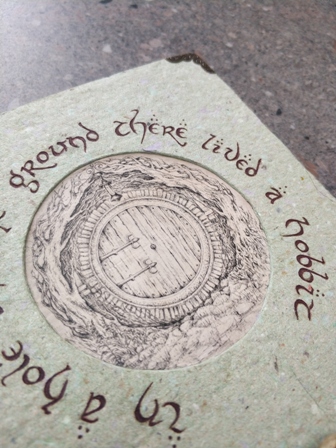 in a hole ground there lived a hobbit